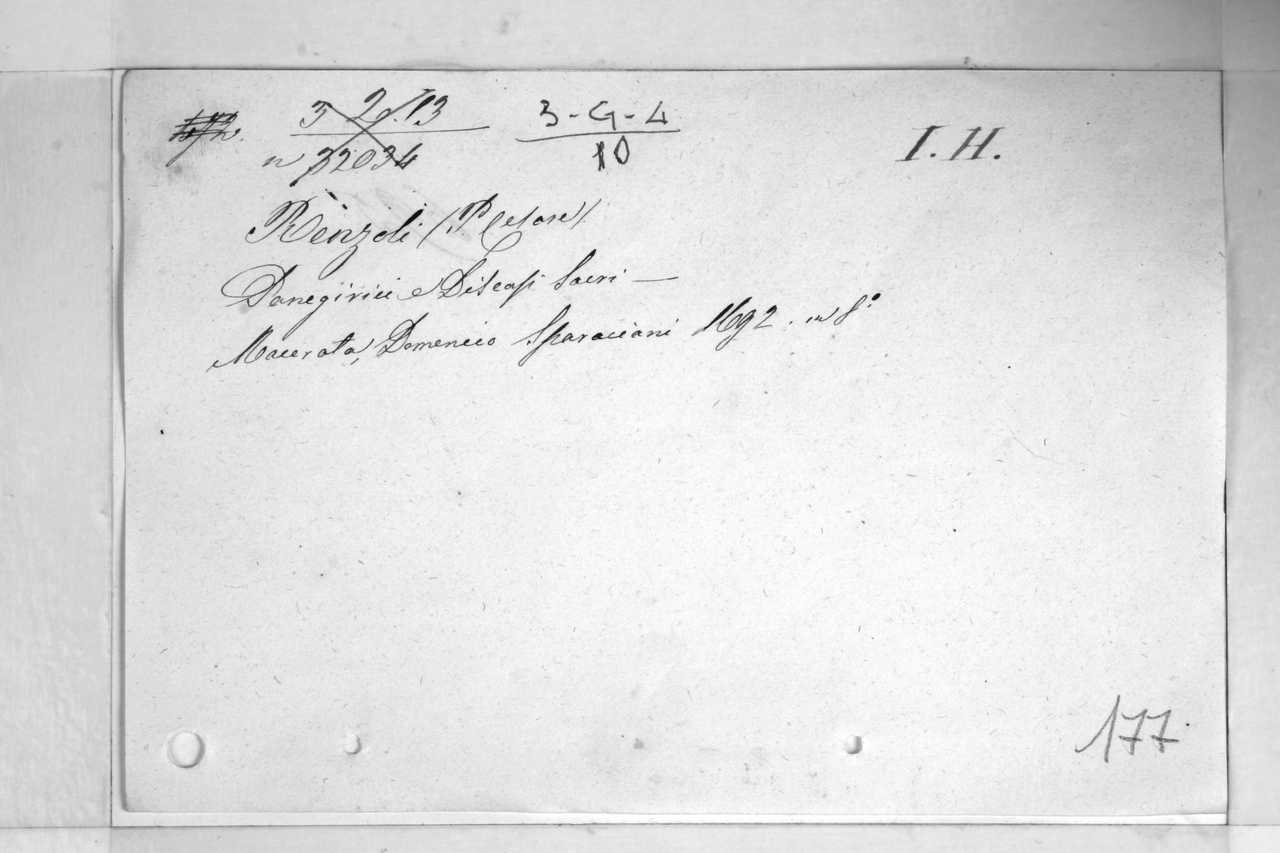 3 2.13 3-G-4 I. H.
n 32034 10
Renzoli (P Cesare)
Panegirici e Discorsi Sacri —
Macerata, Domenico Sparaciani 1692. in 8°
177.